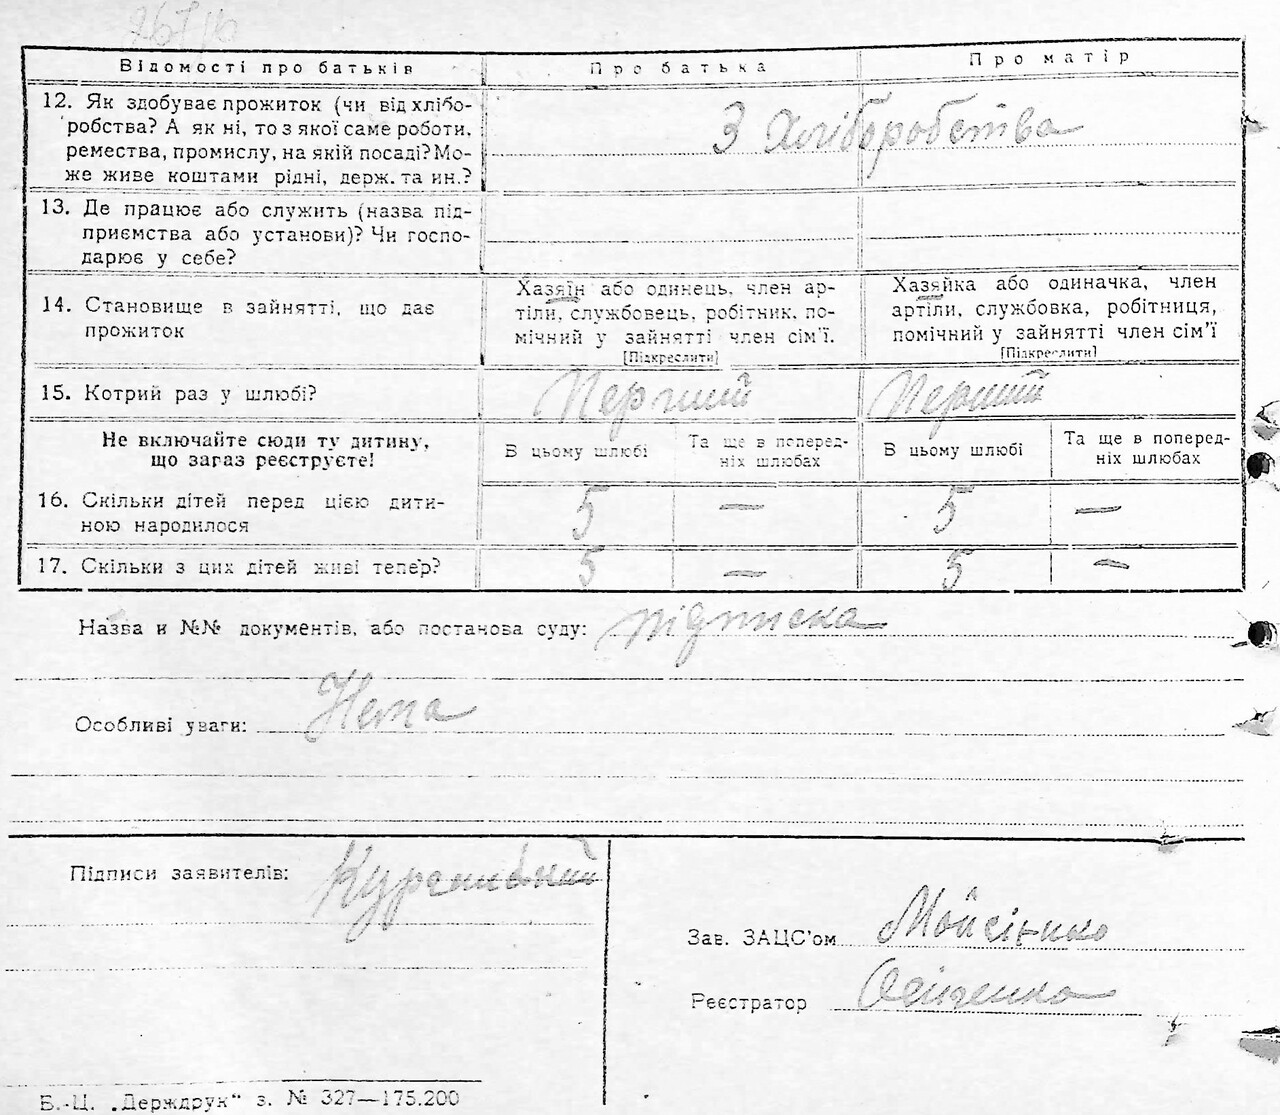 Відомості про батьків
Про батька
Про матір
12. Як здобуває прожиток (чи від хлібо-
робства? А як ні, то з якої саме роботи,
ремества, промислу, на якій посаді? Мо-
же живе коштами рідні, держ. та ин.?
З Хліборобства
13. Де працює або служить (назва під-
приємства або установи)? Чи госпо-
дарює у себе?
14. Становище в зайнятті, що дає
прожиток
Хазяїн або одинець, член ар-
тіли, службовець, робітник, по-
мічний у зайнятті член сім'ї.
[Підкреслити]
Хазяйка або одиначка, член
артіли, службовка, робітниця,
помічний у зайнятті член сім'ї
[Підкреслити]
15. Котрий раз у шлюбі?
Перший
Перший
Не включайте сюди ту дитину,
що загаз реєструєте!
В цьому шлюбі
Та ще в поперед-
ніх шлюбах
В цьому шлюбі
Та ще в поперед-
ніх шлюбах
16. Скільки дітей перед цією дити-
ною народилося
5 — 5 —
17. Скільки з цих дітей живі тепер?
5 — 5 —
Назва и №№ документів, або постанова суду: підписка
Особливі уваги: Нема
Підписи заявителів:
Зав. ЗАЦС'ом Мойсієнко
Реєстратор
Б.-Ц. „Держдрук" з. № 327—175.200